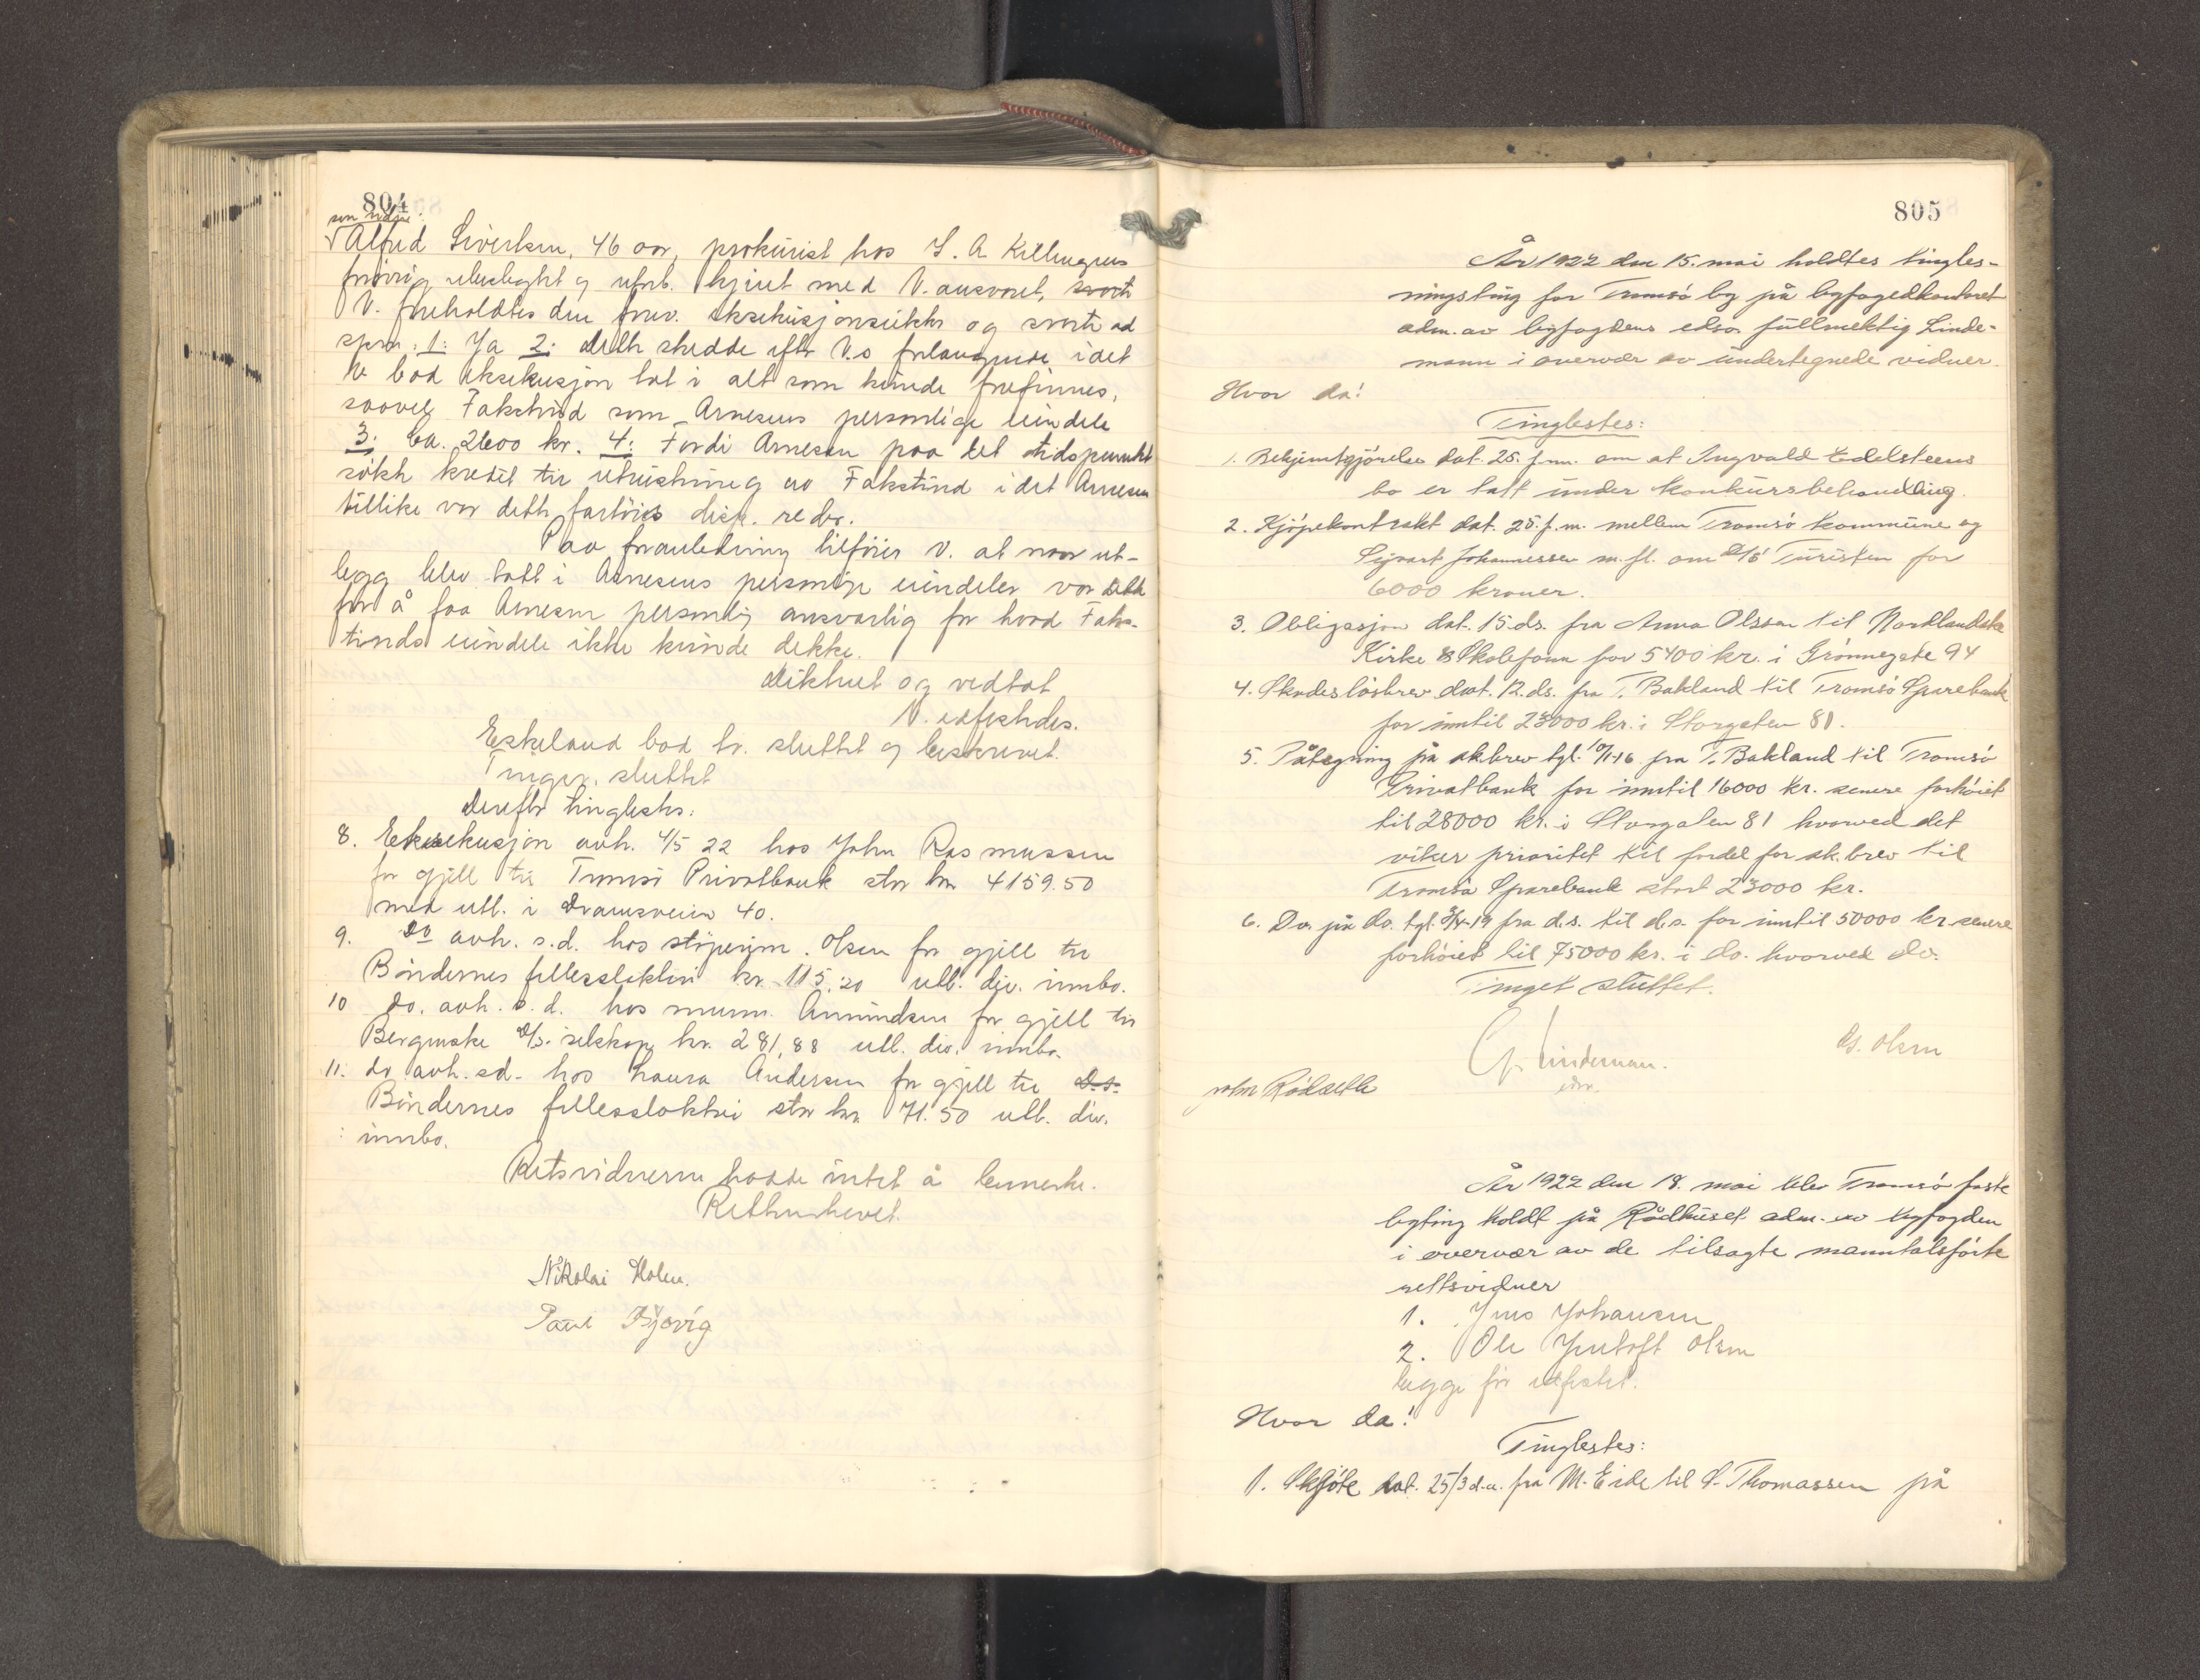 804
som vidne:
Alfred Sivertsen, 46 aar, prokurist hos L. A. Killengreen
forøvrig ubeslegtet og uforb. kjent med V. ansvaret, svorte
V. foreholdtes den frev. eksekusjonssikkr og svorte ad
spm. 1: Ja 2: dette skedde efter V.s forlangende idet
V. bad eksekusjon tat i alt som kunde forefinnes,
saavel Fakstind som Arnesens personlige eiendele
3: Ca. 2600 kr. 4: Fordi Arnesen paa det tidspunkt
søkte kredit til utrustning av Fakstind idet Arnesen
tillike var dette fartøies disp. reder.
Paa foranledning tilføier V. at naar ut-
legg blev tatt i Arnesens personlige eiendeler var dette
for å faa Arnesen personlig ansvarlig for hvad Faks-
tinds eiendele ikke kunde dekke.
Diktert og vedtat
V. edfestedes.
Eskeland bad tv. sluttet og beskrevet.
Tingv. sluttet
Derefter tinglestes:
8. Eksekusjon avh. 4/5 22 hos John Rasmussen
for gjeld til Tromsø Privatbank stor kr 4159.50
med utl. i Dramsveien 40.
9. Do avh. s.d. hos støperim. Olsen for gjeld til
Bøndernes fellesslakteri kr. 115,20 utl. div. innbo.
10 do. avh. s.d. hos murm. Amundsen for gjeld til
Bergenske D/S. selskap kr. 281,88 utl. div. innbo.
11. do avh. sd. hos Laura Andersen for gjeld til d.s.
Bøndernes fellesslakteri stor kr. 71.50 utl. div.
innbo.
Retsvidnerne hadde intet å bemerke.
Retten hevet.
Nikolai Holm.
Paul Bjørvig
805
År 1922 den 15. mai holdtes tingles-
ningsting for Tromsø by på byfogedkontoret
adm. av byfogdens edsv. fullmektig Linde-
mann i overvær av undertegnede vidner.
Hvor da!
Tinglestes:
1. Bekjentgjørelse dat. 25. f.m. om at Ingvald Edelsteens
bo er tatt under konkursbehandling.
2. Kjøpekontrakt dat. 25. f.m. mellem Tromsø kommune og
Sigvart Johannessen m.fl. om D/S Turisten for
6000 kroner.
3. Obligasjon dat. 15. ds. fra Anna Olssen til Nordlandske
Kirke & Skolefonn for 5400 kr. i Grønnegate 94
4. Skadesløsbrev dat. 12. ds. fra T. Bakland til Tromsø Sparebank
for inntil 23000 kr. i Storgaten 81.
5. Påtegning på sk.brev tgl. 10/1-16 fra T. Bakland til Tromsø
Privatbank for inntil 16000 kr. senere forhøiet
til 28000 kr. i Storgaten 81 hvorved det
viker prioritet til fordel for sk.brev til
Tromsø Sparebank stort 23000 kr.
6. Do. på do. tgl. 3/4-19 fra d.s. til d.s. for inntil 50000 kr. senere
forhøiet til 75000 kr. i do. hvorved do.
Tinget sluttet.
G. Lindeman.
edsv.
Ds. Olsen
John Rødsæthe
År 1922 den 18. mai blev Tromsø faste
byting holdt på Rådhuset adm. av byfogden
i overvær av de tilsagte manntalsførte
rettsvidner
1. Jens Johansen
2. Ole Jentoft Olsen
begge før edfestet.
Hvor da!
Tinglestes:
1. Skjøte dat. 25/3 d.a. fra M. Eide til S. Thomassen på